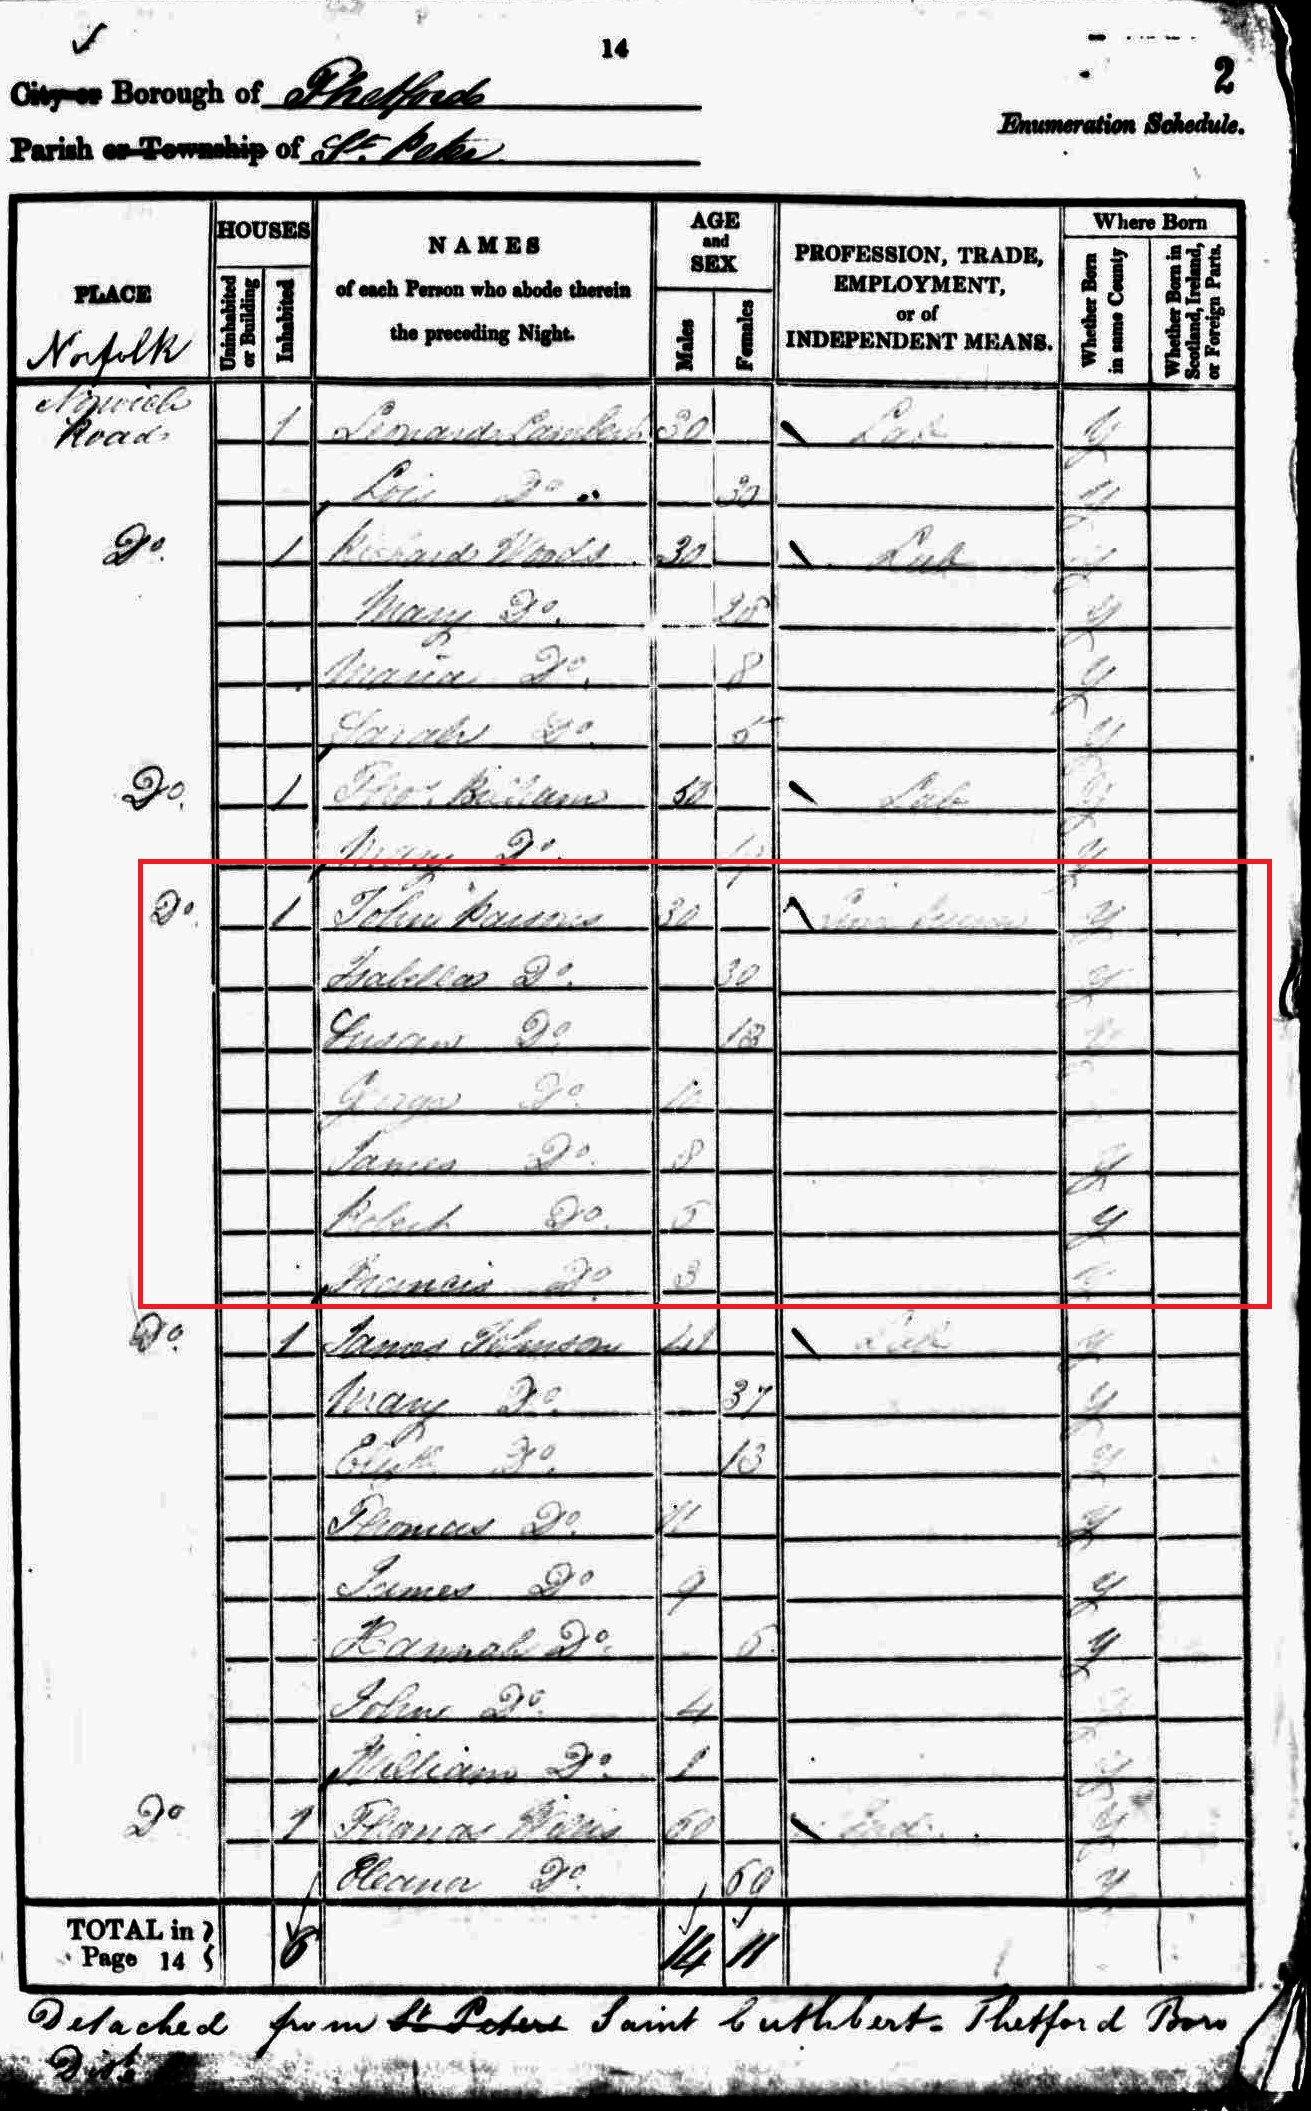 14
2
City or Borough of Thetford
Enumeration Schedule.
Parish or Township of St. Peter
PLACE
HOUSES
Uninhabited or Building
Inhabited
NAMES
of each Person who abode therein
the preceding Night.
AGE
and
SEX
Males
Females
PROFESSION, TRADE,
EMPLOYMENT,
or of
INDEPENDENT MEANS.
Where Born
Whether Born in same County
Whether Born in Scotland, Ireland, or Foreign Parts.
Norfolk
Norwich
Road 1 Leonard Lambert 30 Lab Y
Lois Do 30 Y
Do. 1 Richard Woods 30 Lab Y
Mary Do. Y
Maria Do. 8 Y
Sarah Do. 5 Y
Do. 1 Thos. 50 Lab Y
Mary Do. Y
Do. 1 John Parsons 30 Y
Isabella Do. 30 Y
Susan Do 13 Y
George Do. 10
James Do. 8 Y
Robert Do. 5 Y
Francis Do. 3 Y
Do. 1 James Johnson 41 Lab Y
Mary Do. 37 Y
Elizth Do. 13 Y
Thomas Do. 11 Y
James Do 9 Y
Hannah Do. 5 Y
John Do. 4 Y
William Do. 1 Y
Do 1 Thomas Willis 60 Ind. Y
Eleanor Do. 69 Y
TOTAL in
Page 14 6 14 11
Detached from St. Peters Saint Cuthbert. Thetford Boro
Dist.